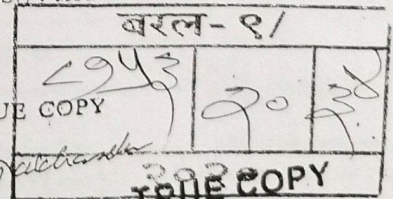 बरल-९/
८९५३ २० ३४
UE COPY
TRUE COPY